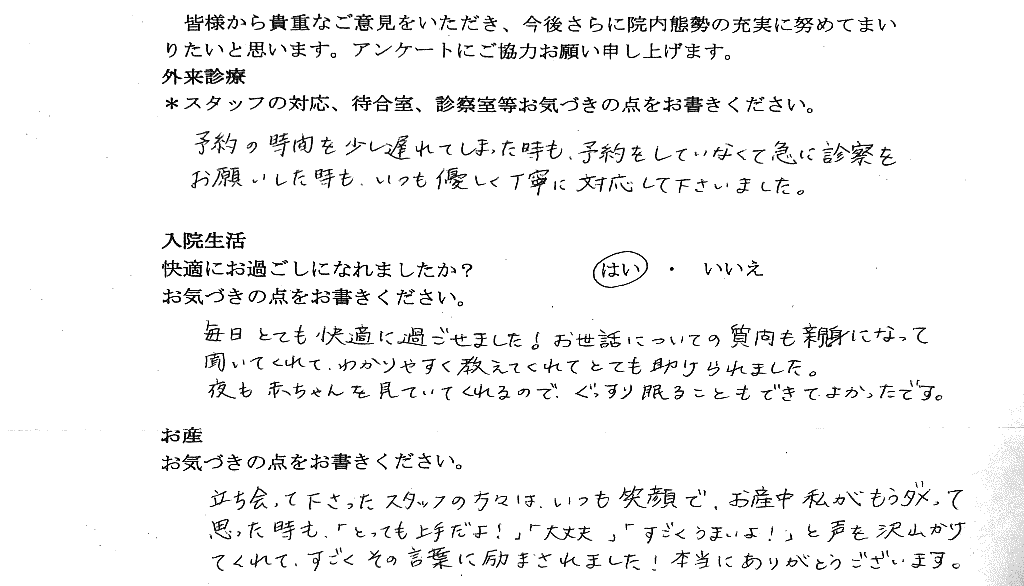 皆様から貴重なご意見をいただき、今後さらに院内態勢の充実に努めてまい
りたいと思います。アンケートにご協力お願い申し上げます。
外来診療
＊スタッフの対応、待合室、診察室等お気づきの点をお書きください。
予約の時間を少し遅れてしまった時も、予約をしていなくて急に診察を
お願いした時も、いつも優しく丁寧に対応して下さいました。
入院生活
快適にお過ごしになれましたか？ はい ・ いいえ
お気づきの点をお書きください。
毎日とても快適に過ごせました！お世話についての質問も親身になって
聞いてくれて、わかりやすく教えてくれてとても助けられました。
夜も赤ちゃんを見ていてくれるので、ぐっすり眠ることもできてよかったです。
お産
お気づきの点をお書きください。
立ち会って下さったスタッフの方々は、いつも笑顔で、お産中私がもうダメって
思った時も、「とっても上手だよ！」「大丈夫」「すごくうまいよ！」と声を沢山かけ
てくれて、すごくその言葉に励まされました！本当にありがとうございます。